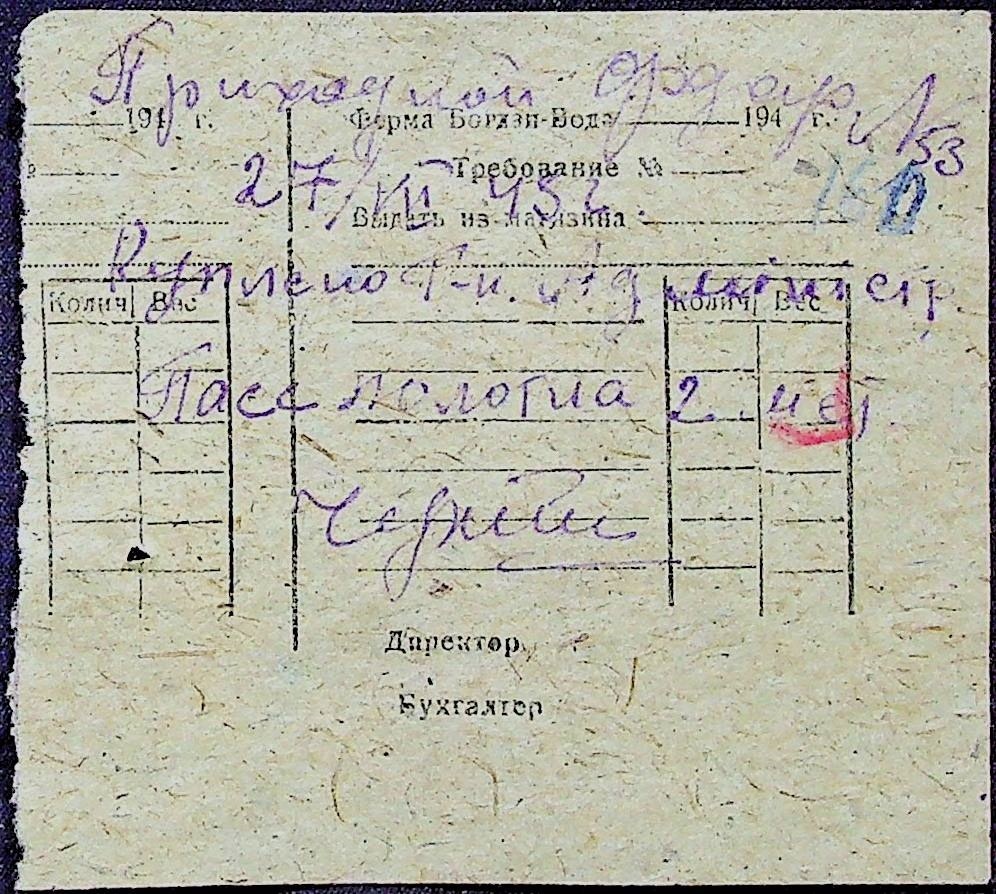 Приходной Ордер № 53
194 г. Ферма Богази-Вода 194 г.
Требование №
27/VII 43 г. 160
Выдать из магазина
Куплено Г-н. Администр
Колич Вес Колич Вес
Пасс полотна 2 мет
Директор
Бухгалтер